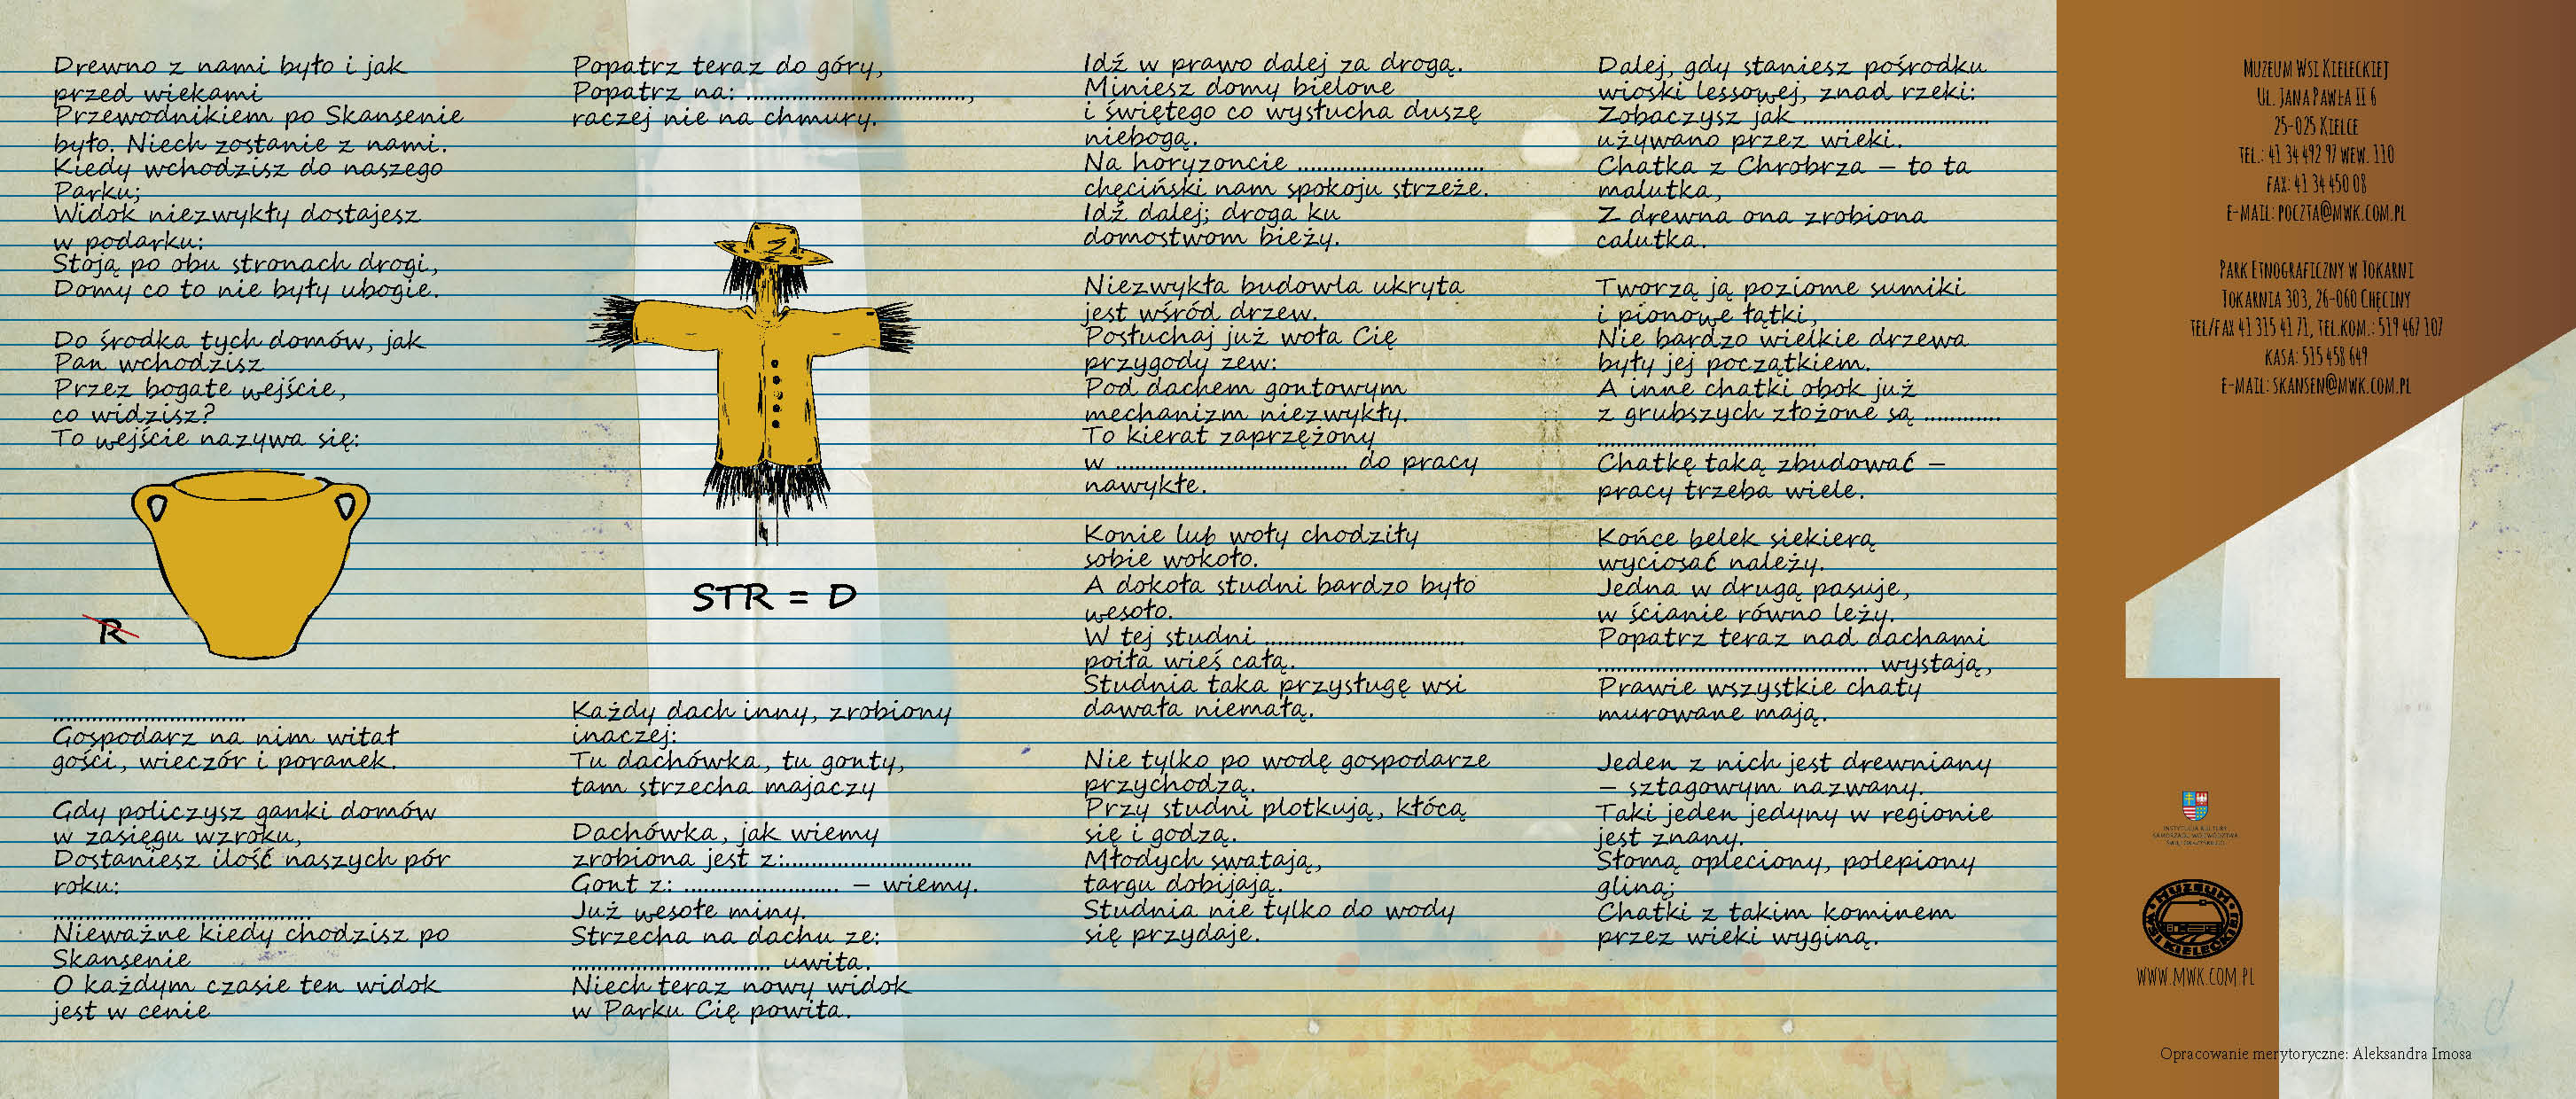 Drewno z nami było i jak
przed wiekami
Przewodnikiem po Skansenie
było. Niech zostanie z nami.
Kiedy wchodzisz do naszego
Parku;
Widok niezwykły dostajesz
w podarku:
Stoją po obu stronach drogi,
Domy co to nie były ubogie.
Do środka tych domów, jak
Pan wchodzisz
Przez bogate wejście,
co widzisz?
To wejście nazywa się:
R
..............................
Gospodarz na nim witał
gości, wieczór i poranek.
Gdy policzysz ganki domów
w zasięgu wzroku,
Dostaniesz ilość naszych pór
roku:
........................................
Nieważne kiedy chodzisz po
Skansenie
O każdym czasie ten widok
jest w cenie
Popatrz teraz do góry,
Popatrz na: ..................................,
raczej nie na chmury.
STR = D
Każdy dach inny, zrobiony
inaczej:
Tu dachówka, tu gonty,
tam strzecha majaczy
Dachówka, jak wiemy
zrobiona jest z:.............................
Gont z: ........................ – wiemy.
Już wesołe miny.
Strzecha na dachu ze:
............................... uwita.
Niech teraz nowy widok
w Parku Cię powita.
Idź w prawo dalej za drogą.
Miniesz domy bielone
i świętego co wysłucha duszę
niebogą.
Na horyzoncie .............................
chęciński nam spokoju strzeże.
Idź dalej; droga ku
domostwom bieży.
Niezwykła budowla ukryta
jest wśród drzew.
Posłuchaj już woła Cię
przygody zew:
Pod dachem gontowym
mechanizm niezwykły.
To kierat zaprzężony
w .................................... do pracy
nawykłe.
Konie lub woły chodziły
sobie wokoło.
A dokoła studni bardzo było
wesoło.
W tej studni ...............................
poiła wieś całą.
Studnia taka przysługę wsi
dawała niemałą.
Nie tylko po wodę gospodarze
przychodzą.
Przy studni plotkują, kłócą
się i godzą.
Młodych swatają,
targu dobijają.
Studnia nie tylko do wody
się przydaje.
Dalej, gdy staniesz pośrodku
wioski lessowej, znad rzeki:
Zobaczysz jak .............................
używano przez wieki.
Chatka z Chrobrza – to ta
malutka,
Z drewna ona zrobiona
calutka.
Tworzą ją poziome sumiki
i pionowe łątki,
Nie bardzo wielkie drzewa
były jej początkiem.
A inne chatki obok już
z grubszych złożone są ............
..................................
Chatkę taką zbudować –
pracy trzeba wiele.
Końce belek siekierą
wyciosać należy.
Jedna w drugą pasuje,
w ścianie równo leży.
Popatrz teraz nad dachami
.......................................... wystają,
Prawie wszystkie chaty
murowane mają.
Jeden z nich jest drewniany
– sztagowym nazwany.
Taki jeden jedyny w regionie
jest znany.
Słomą opleciony, polepiony
gliną;
Chatki z takim kominem
przez wieki wyginą.
MUZEUM WSI KIELECKIEJ
UL. JANA PAWŁA II 6
25-025 KIELCE
TEL.: 41 34 492 97 WEW. 110
FAX: 41 34 450 08
E-MAIL: POCZTA@MWK.COM.PL
PARK ETNOGRAFICZNY W TOKARNI
TOKARNIA 303, 26-060 CHĘCINY
TEL/FAX 41 315 41 71, TEL.KOM.: 519 467 107
KASA: 515 458 649
E-MAIL: SKANSEN@MWK.COM.PL
INSTYTUCJA KULTURY
SAMORZĄDU WOJEWÓDZTWA
ŚWIĘTOKRZYSKIEGO
MUZEUM
WSI KIELECKIEJ
WWW.MWK.COM.PL
Opracowanie merytoryczne: Aleksandra Imosa